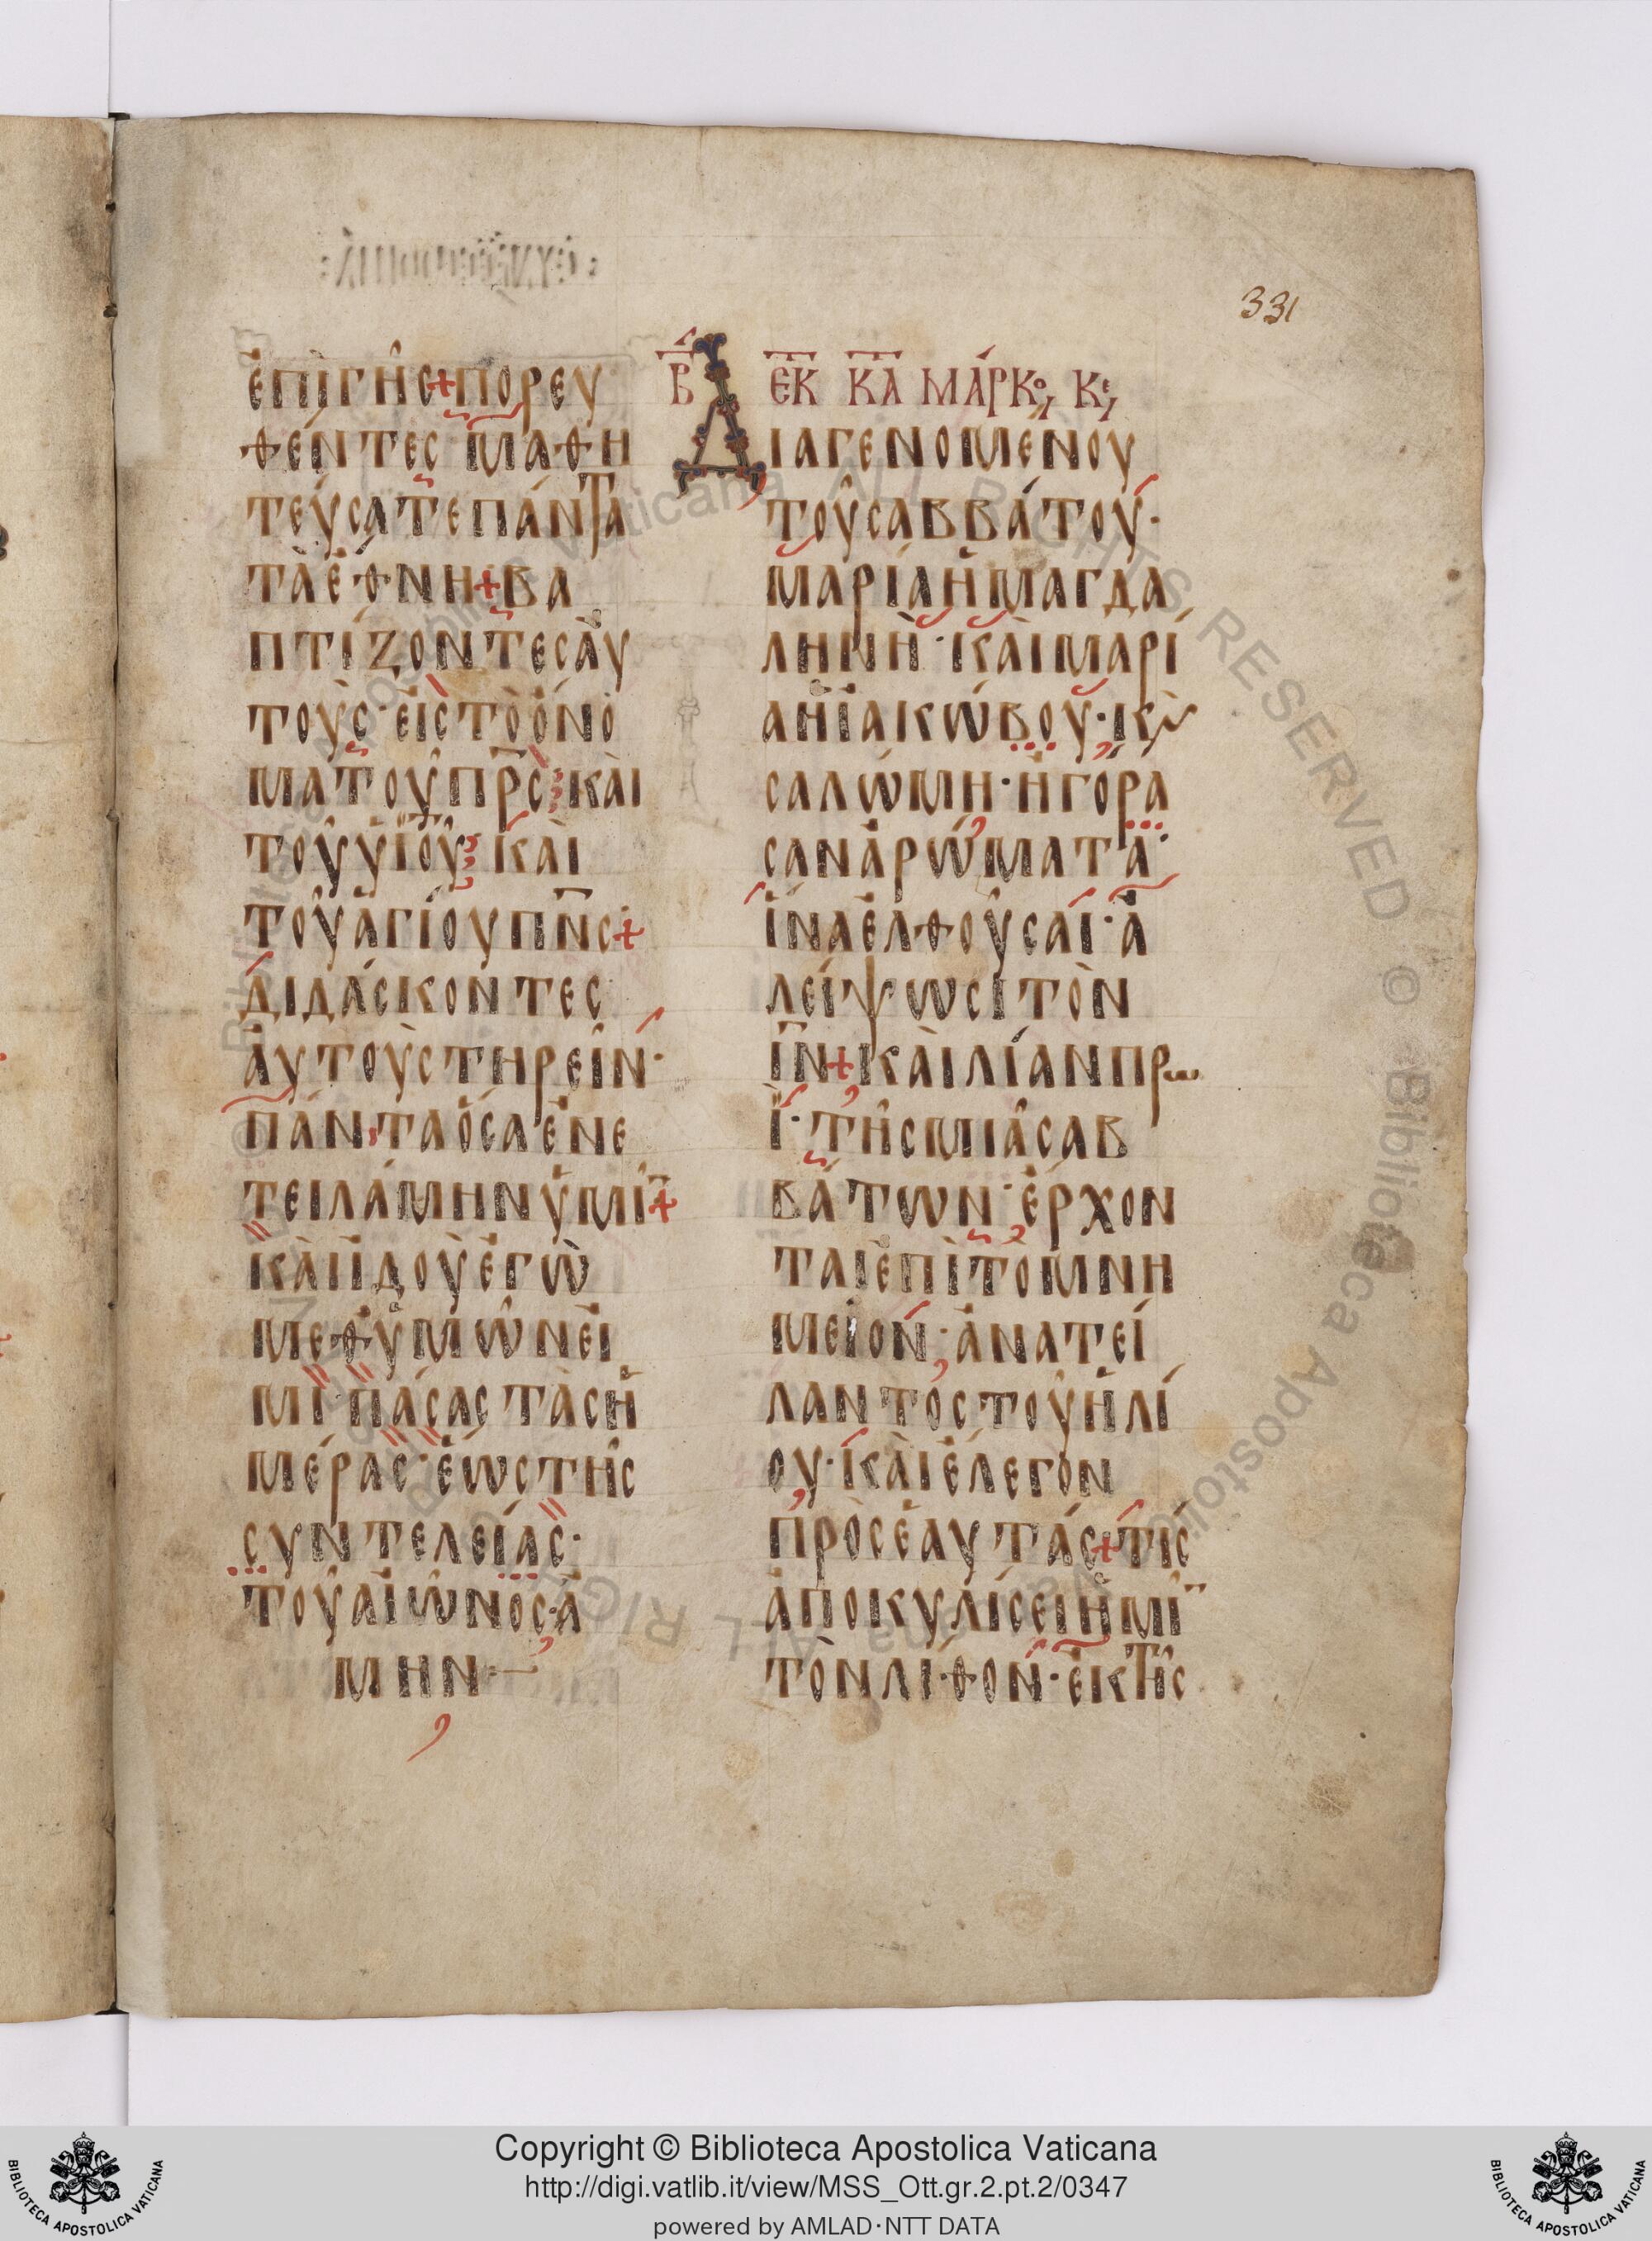 331
ἐπὶ γῆς + πορευ
θέντες μαθη
τεύσατε πάντα
τὰ ἔθνη + βα
πτίζοντες αὐ
τοὺς · εἰς τὸ ὄνο
μα τοῦ πρ̅ς · καὶ
τοῦ υἱοῦ · καὶ
τοῦ ἁγίου πν̅ς +
διδάσκοντες
αὐτοὺς τηρεῖν ·
πάντα ὅσα ἐνε
τειλάμην ὑμῖ̅ +
καὶ ἰδοὺ ἐγὼ
μεθ ὑμῶν εἰ
μι · πάσας τὰς ἡ
μέρας · ἕως τῆς
συντελείας ·
τοῦ αἰῶνος · ἀ
μήν ·
Β ΕΚ ΚΑ ΜΑΡΚΟ, ΚΕ,
Διαγενομένου
τοῦ σαββάτου ·
μαρία ἡ μαγδα
ληνὴ · καὶ μαρί
α ἡ ἰακώβου · κὶ
σαλώμη · ἠγόρα
σαν ἀρώματα ·
ἵνα ἐλθοῦσαι · ἀ
λείψωσι τὸν
ι̅ν + καὶ λίαν πρω
ῒ · τῆς μιᾶς σαβ
βάτων · ἔρχον
ται ἐπὶ τὸ μνη
μεῖον · ἀνατεί
λαντος τοῦ ἡλί
ου · καὶ ἔλεγον
πρὸς ἑαυτάς + τίς
ἀποκυλίσει ἡμῖ
τὸν λίθον · ἐκ τῆς
Copyright © Biblioteca Apostolica Vaticana
http://digi.vatlib.it/view/MSS_Ott.gr.2.pt.2/0347
powered by AMLAD·NTT DATA
BIBLIOTECA APOSTOLICA VATICANA
BIBLIOTECA APOSTOLICA VATICANA